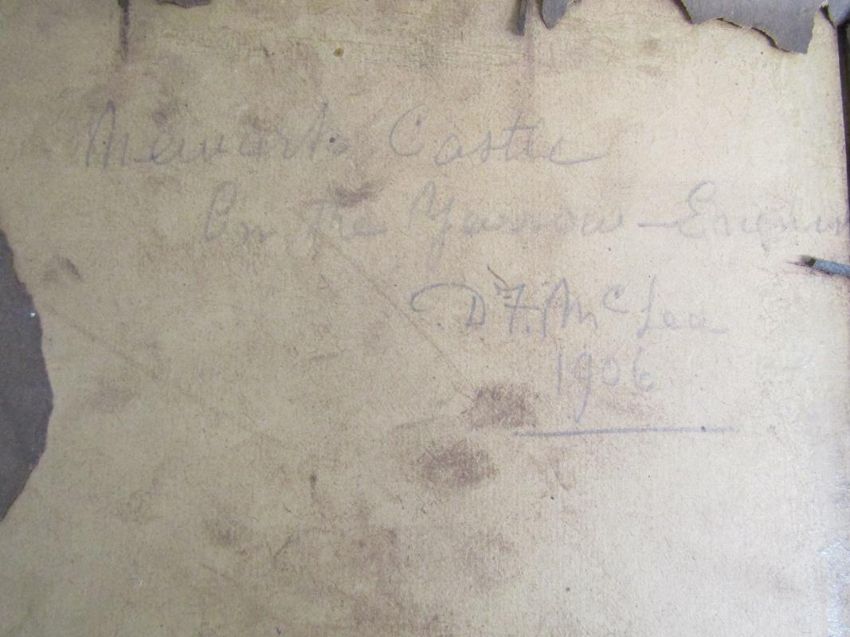 Newark Castle
On the Yarrow —
D. F. McLea
1906